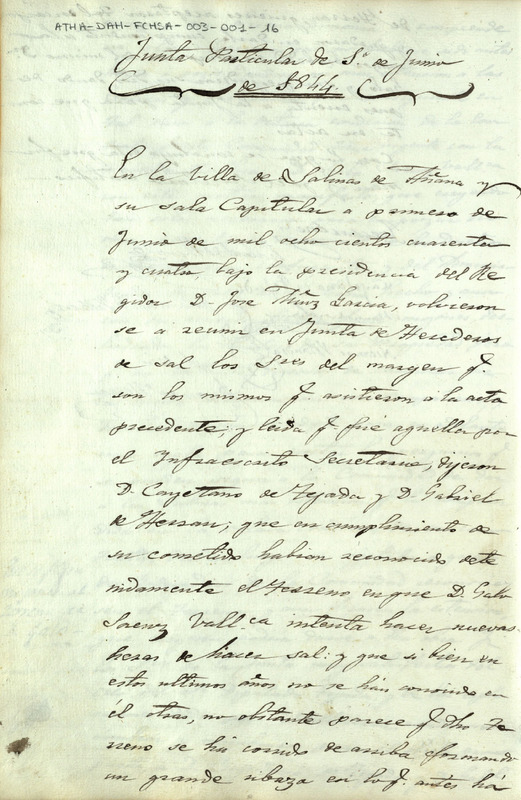 ATHA-DAH-FCHSA-003-001-16
Junta Particular de 1º. de Junio
de 1844.
En la Villa de Salinas de Añana y
su sala Capitular a primero de
Junio de mil ocho cientos cuarenta
y cuatro, bajo la presidencia del Re
gidor D. Jose García, volvieron
se a reunir en Junta de Herederos
de sal los S.res del margen q.
son los mismos q. asistieron a la acta
precedente; y leida q. fué aquella por
el Infraescrito Secretario, dijeron
D. Cayetano de Tejada y D. Gabriel
de Herran; que en cumplimiento de
su cometido habian reconocido dete
nidamente el terreno en que D. Galo
Saenz intenta hacer nuevas
heras de hacer sal: y que si bien en
estos ultimos años no se han conocido en
él otras, no obstante parece q. dho te
rreno se ha corrido de arriba formando
un grande ribazo en lo q. antes há